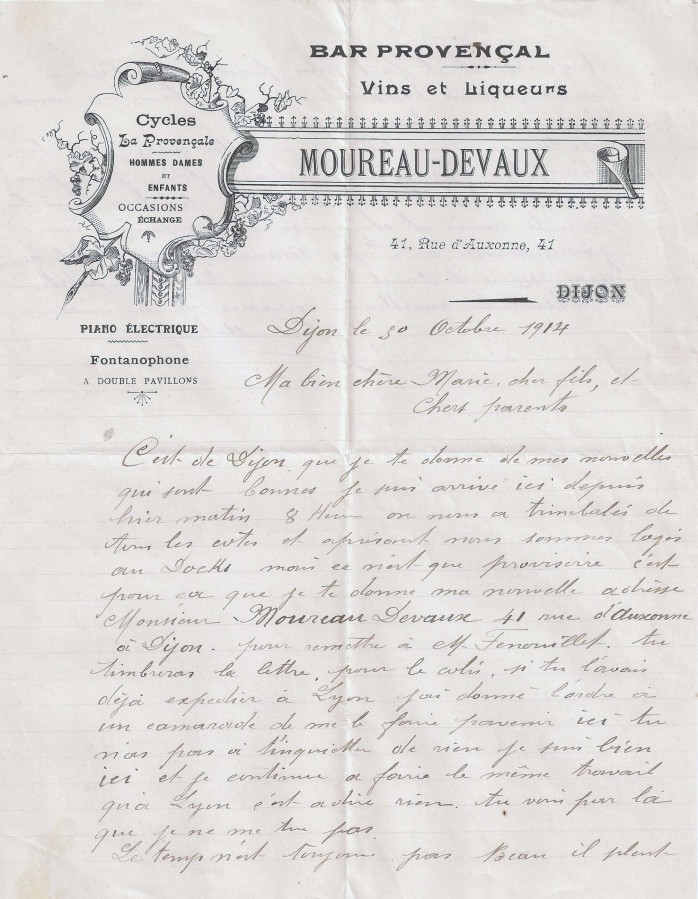 BAR PROVENÇAL
Vins et Liqueurs
Cycles
La Provençale
HOMMES DAMES
ET
ENFANTS
OCCASIONS
ÉCHANGE
MOUREAU-DEVAUX
41, Rue d'Auxonne, 41
DIJON
PIANO ÉLECTRIQUE
Fontanophone
A DOUBLE PAVILLONS
Dijon le 30 Octobre 1914
Ma bien chère Marie, cher fils, et
Chers parents
C'est de Dijon que je te donne de mes nouvelles
qui sont bonnes je suis arrivé ici depuis
hier matin 8 Heure on nous a trimbalés de
tous les cotes et apresent nous sommes logés
au Docks mais ce n'est que provisoire c'est
pour ca que je te donne ma nouvelle adresse
Monsieur Moureau Devaux 41 rue d'Auxonne
à Dijon. pour remettre à M. Fenouillet. tu
timbreras la lettre. pour le colis, si tu l'avais
déjà expedier à Lyon j'ai donné l'ordre à
un camarade de me le faire parvenir ici tu
n'as pas à t'inquietter de rien je suis bien
ici et je continue a faire le même travail
qu'a Lyon c'est a dire rien. tu vois par là
que je ne me tue pas.
Le temp n'est toujours pas Beau il pleut